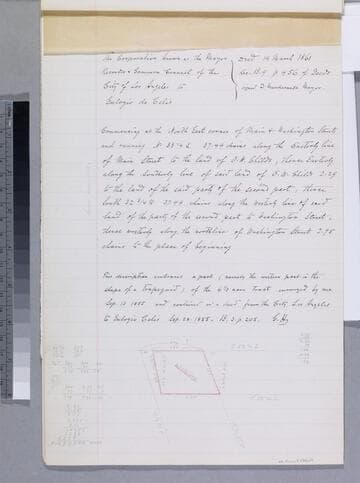 The Corporation known as the Mayor
Recorder & Common Council of the
City of Los Angeles to
Eulogio de Celis
Deed 14 March 1861
Rec. B. 4 p 456 of Deeds
Mayor.
Commencing at the North East corner of Main & Washington Streets
and running N 33° E 37.44 chains along the Easterly line
of Main Street to the land of O. W. Childs, thence Easterly
along the Southerly line of said land of O. W. Childs 2.29
to the land of the said party of the second part, thence
South 37.44 chains along the westerly line of said
land of the party of the second part to Washington Street,
thence westerly along the north line of Washington Street 2.75
chains to the place of beginning
This description embraces a part, (namely the western part in the
shape of a Trapezoid), of the acre tract surveyed by me
Sep. 13 1855 and contained in a deed from the City Los Angeles
to Eulogio Celis Sep. 20. 1855. B. 2. p. 205. G. H.